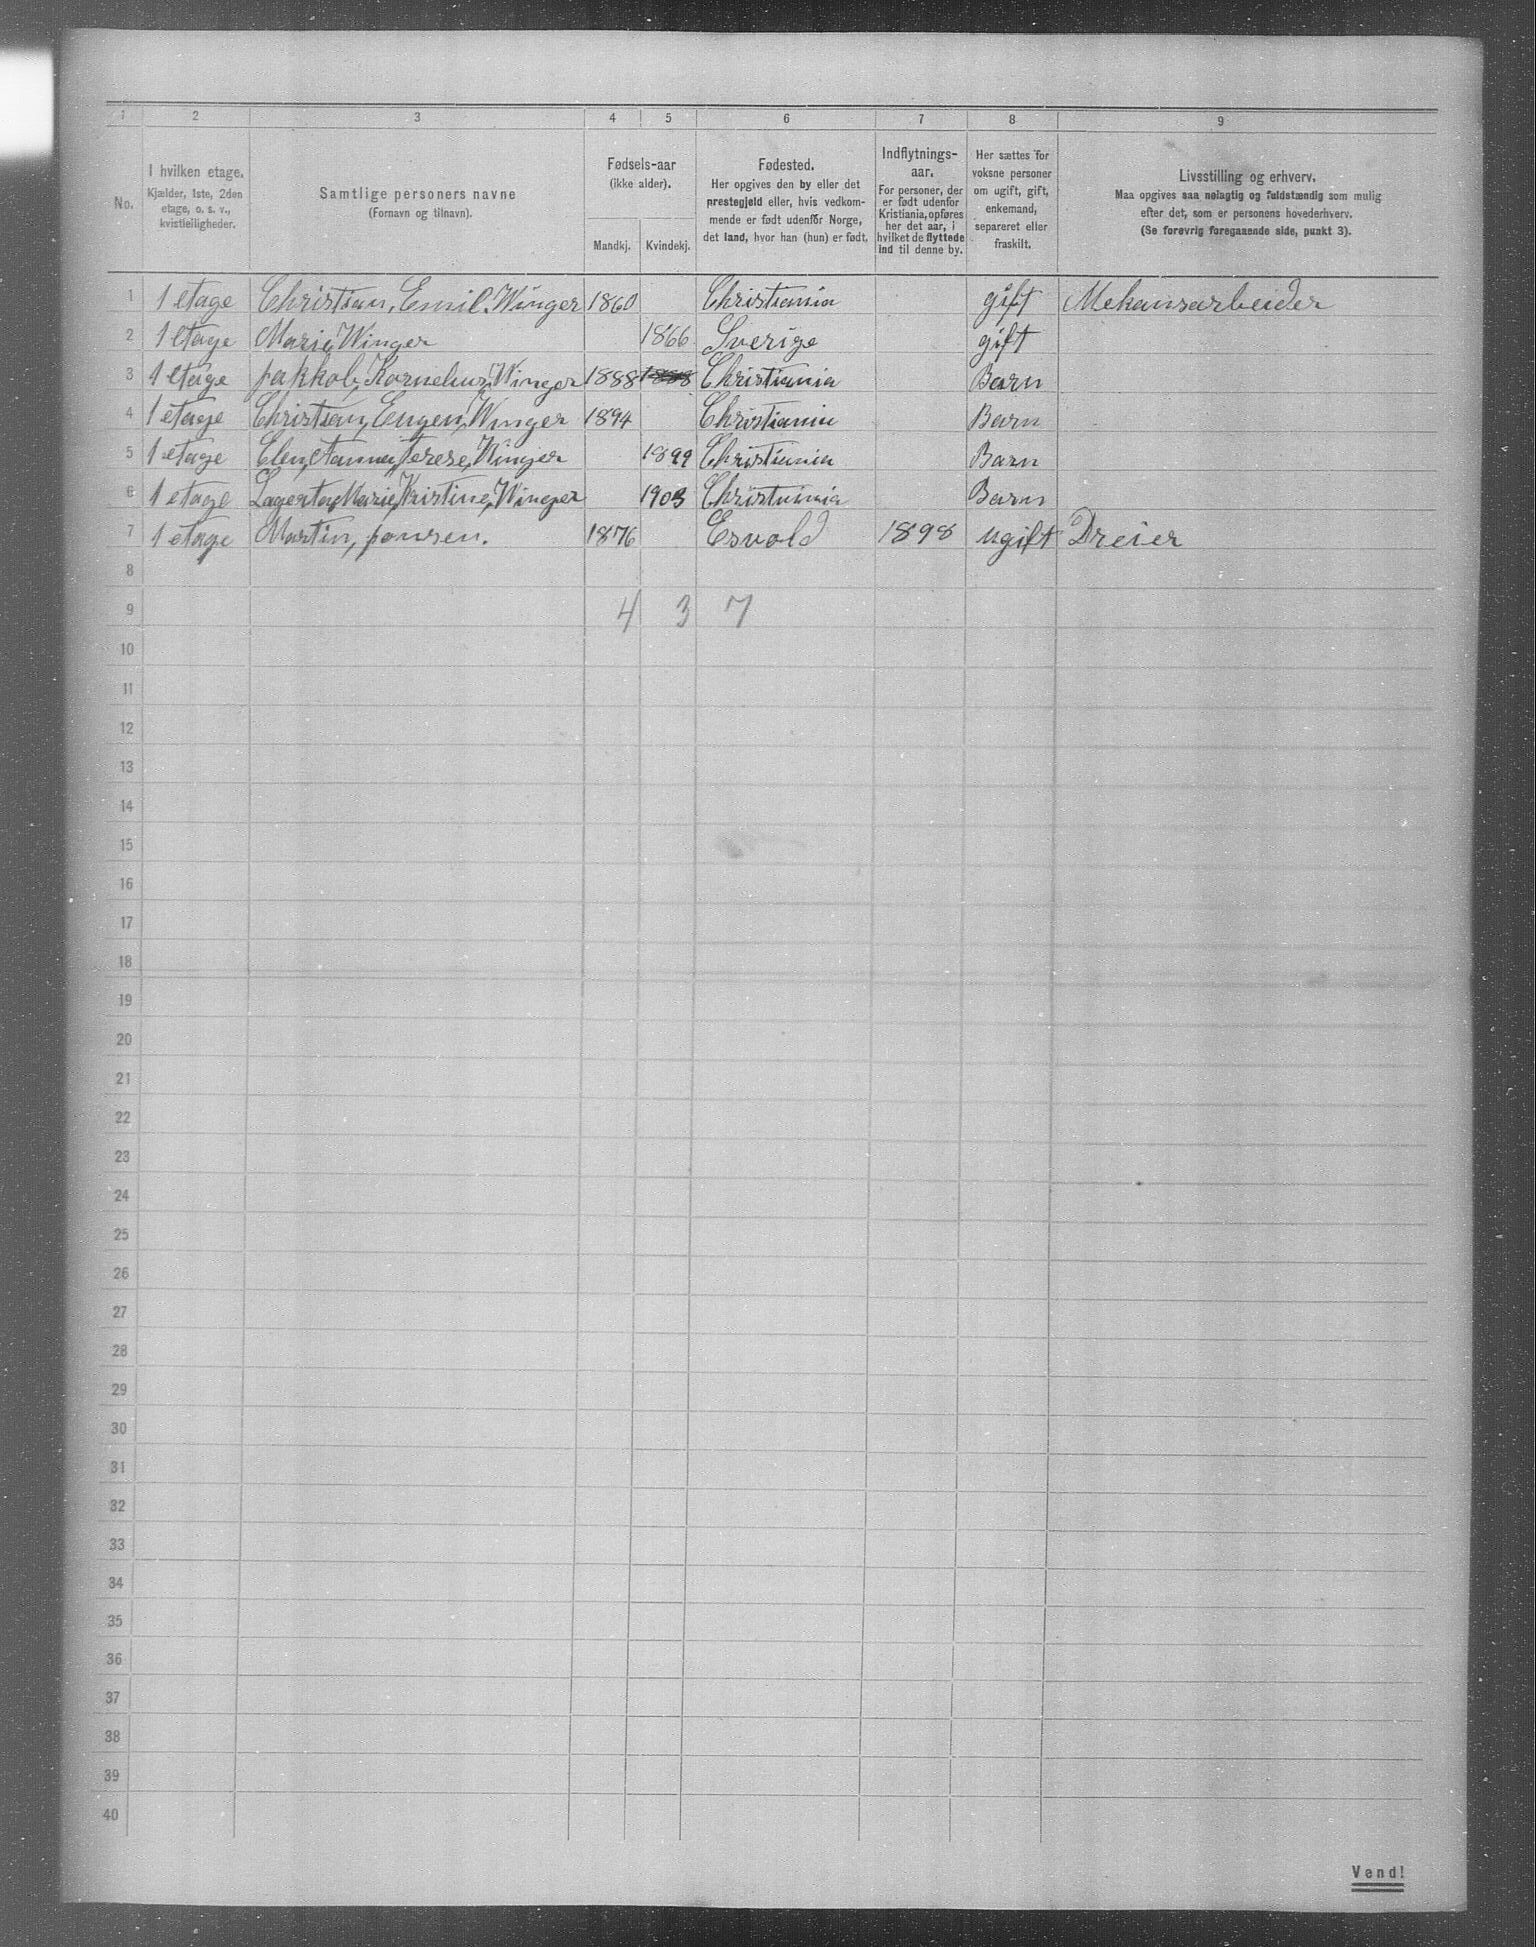 1 2 3 4 5 6 7 8 9
No.
I hvilken etage.
Kjælder, 1ste, 2den
etage, o. s. v.,
kvistleiligheder.
Samtlige personers navne
(Fornavn og tilnavn).
Fødsels-aar
(ikke alder).
Mandkj. Kvindekj.
Fødested.
Her opgives den by eller det
prestegjeld eller, hvis vedkom-
mende er født udenfor Norge,
det land, hvor han (hun) er født.
Indflytnings-
aar.
For personer, der
er født udenfor
Kristiania, opføres
her det aar, i
hvilket de flyttede
ind til denne by.
Her sættes for
voksne personer
om ugift, gift,
enkemand,
separeret eller
fraskilt.
Livsstilling og erhverv.
Maa opgives saa nøiagtig og fuldstændig som mulig
efter det, som er personens hovederhverv.
(Se forøvrig foregaaende side, punkt 3).
1 1 etage Christian, Emil. Winger 1860 Christiania gift Mekansarbeider
2 1 etage Marie, Winger 1866 Sverige gift
3 1 etage Jakkob, Kornelius, Winger 1888 1888 Christiania Barn
4 1 etage Christian, Eugen, Winger 1894 Christiania Barn
5 1 etage Elen, Anna, Terese, Winger 1899 Christiania Barn
6 1 etage Lagerta, Marie, Kristine, Winger 1903 Christiania Barn
7 1 etage Martin, Jonsen. 1876 Esvold 1898 ugift Dreier
8
9 4 3 7
10
11
12
13
14
15
16
17
18
19
20
21
22
23
24
25
26
27
28
29
30
31
32
33
34
35
36
37
38
39
40
Vend!